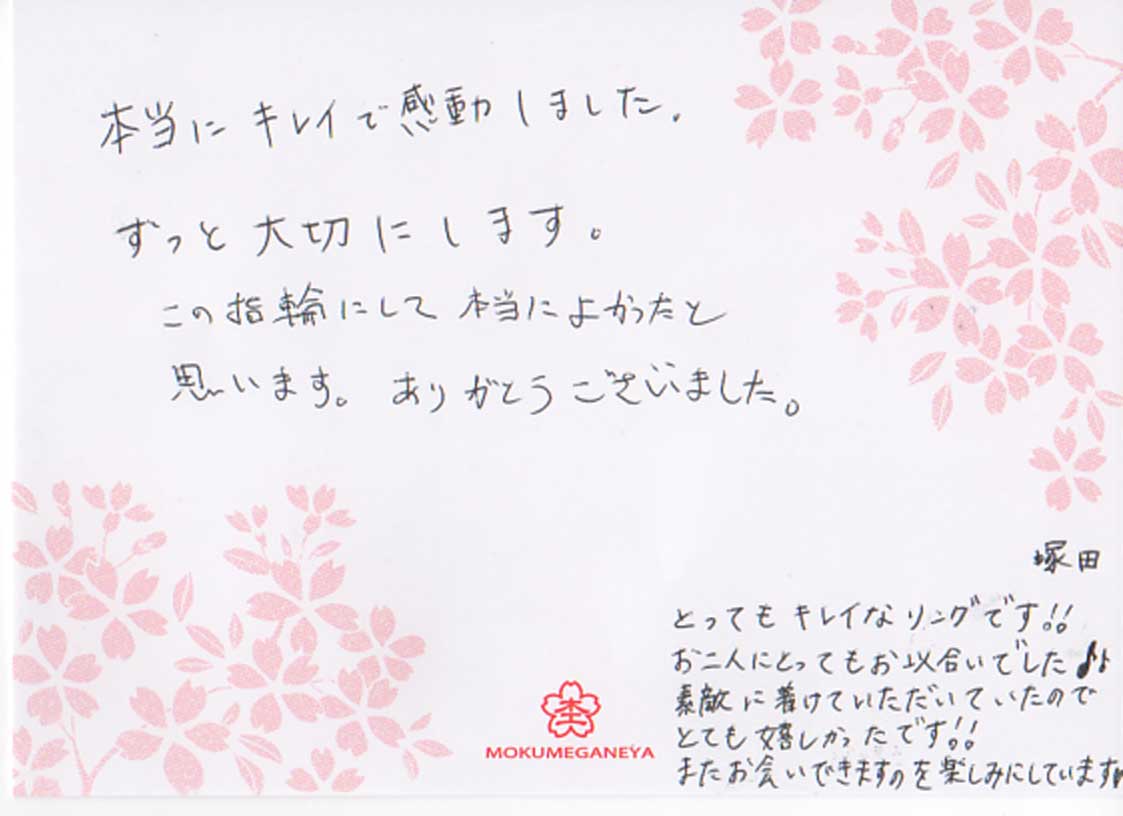 本当にキレイで感動しました。
ずっと大切にします。
この指輪にして本当によかったと
思います。ありがとうございました。
塚田
とってもキレイなリングです!!
お二人にとってもお以合いでした♪♪
素敵に着けていただいていたので
とても嬉しかったです!!
またお会いできますのを楽しみにしています♥
杢
MOKUMEGANEYA